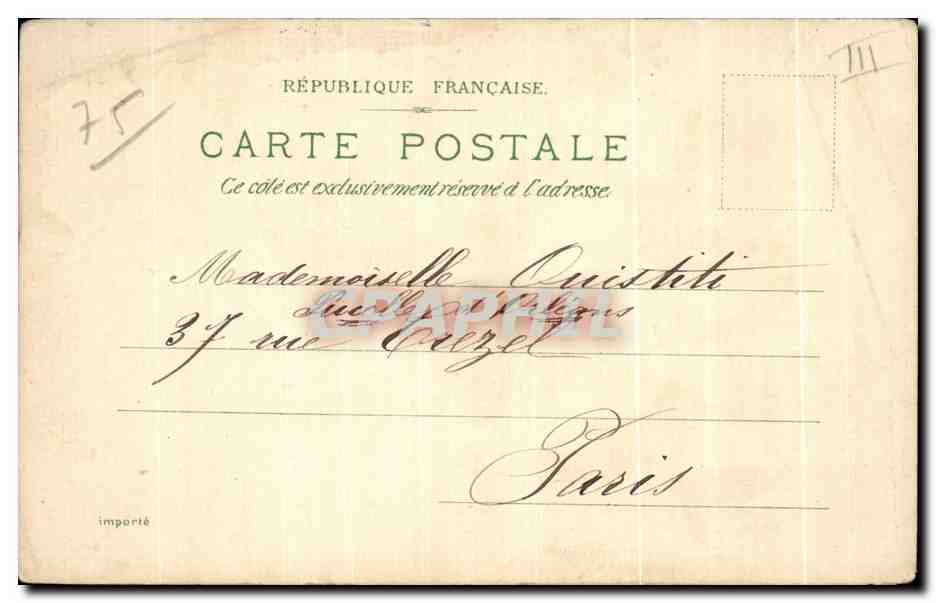 75
III
RÉPUBLIQUE FRANÇAISE.
CARTE POSTALE
Ce côté est exclusivement réservé à l'adresse.
Mademoiselle Ouistiti
d'Orléans
37 rue
Paris
importé